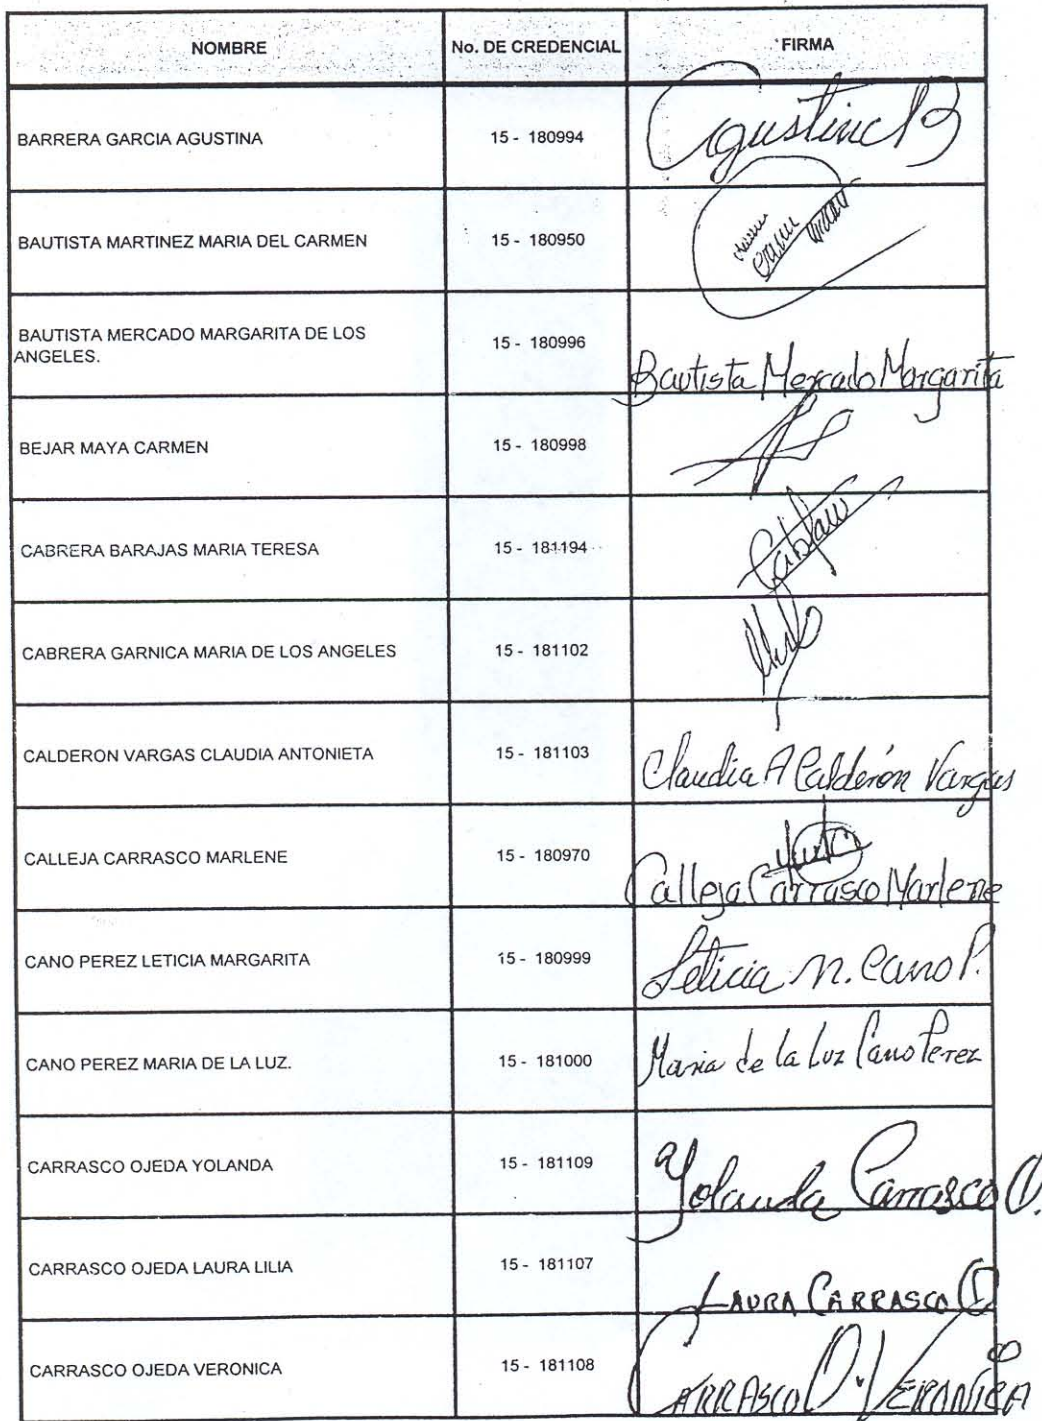 NOMBRE No. DE CREDENCIAL FIRMA
BARRERA GARCIA AGUSTINA 15 - 180994 Agustina B
BAUTISTA MARTINEZ MARIA DEL CARMEN 15 - 180950
BAUTISTA MERCADO MARGARITA DE LOS
ANGELES. 15 - 180996 Bautista Mercado Margarita
BEJAR MAYA CARMEN 15 - 180998
CABRERA BARAJAS MARIA TERESA 15 - 181194
CABRERA GARNICA MARIA DE LOS ANGELES 15 - 181102
CALDERON VARGAS CLAUDIA ANTONIETA 15 - 181103 Claudia A Calderón Vargas
CALLEJA CARRASCO MARLENE 15 - 180970 Calleja Carrasco Marlene
CANO PEREZ LETICIA MARGARITA 15 - 180999 Leticia M. Cano P.
CANO PEREZ MARIA DE LA LUZ. 15 - 181000 Maria de la Luz Cano Perez
CARRASCO OJEDA YOLANDA 15 - 181109 Yolanda Carrasco O.
CARRASCO OJEDA LAURA LILIA 15 - 181107 LAURA CARRASCO O
CARRASCO OJEDA VERONICA 15 - 181108 CARRASCO O. VERONICA